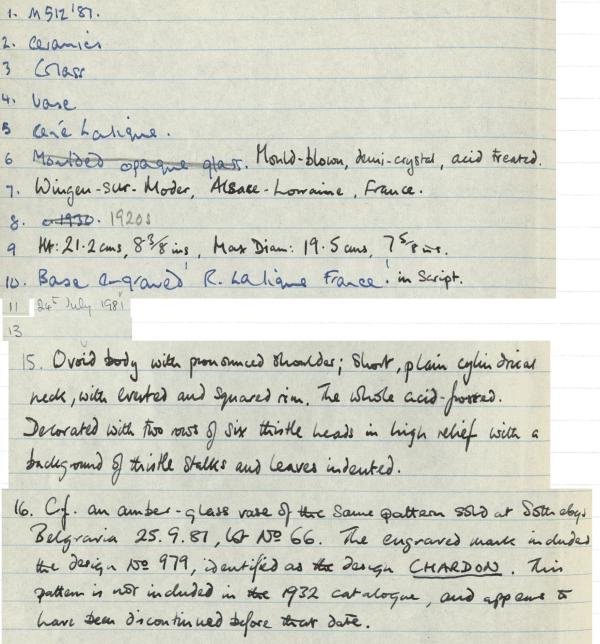 1. M512'81.
2. Ceramics
3 Glass
4. Vase
5 René Lalique.
6 Moulded opaque glass. Mould-blown, demi-crystal, acid treated.
7. Wingen-sur-Moder, Alsace-Lorraine, France.
8. c.1930. 1920s
9 Ht: 21.2 cms, 8 3/8 ins, Max Diam: 19.5 cms, 7 5/8 ins.
10. Base engraved 'R. Lalique France' in Script.
11 24th July 1981
13
15. Ovoid body with pronounced shoulder; short, plain cylindrical
neck, with everted and squared rim. The whole acid-frosted.
Decorated with two rows of six thistle heads in high relief with a
background of thistle stalks and leaves indented.
16. Cf. an amber-glass vase of the same pattern sold at Sothebys
Belgravia 25.9.81, lot No 66. The engraved mark included
the design No 979, identified as the design CHARDON. This
pattern is not included in the 1932 catalogue, and appears to
have been discontinued before that date.